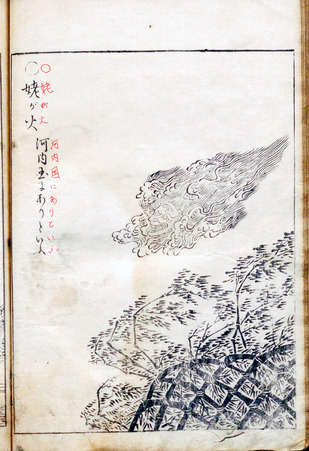 ○姥が火
河内国にありといふ
○姥が火
河内国にありといふ